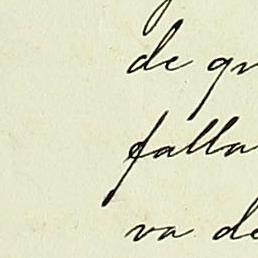 de
falla
va de